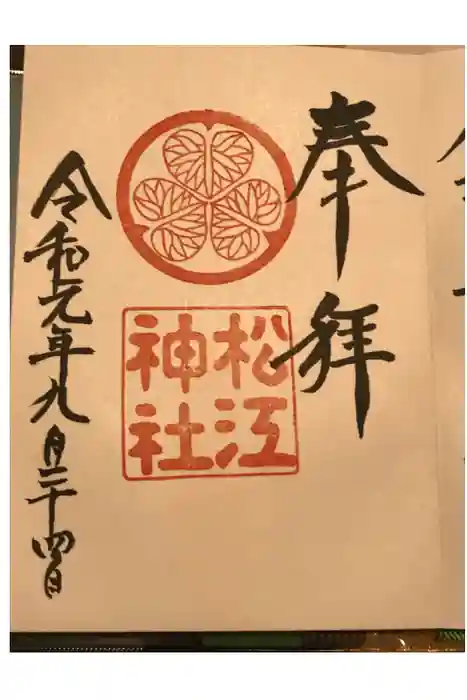 奉拝
松江
神社
令和元年九月二十四日